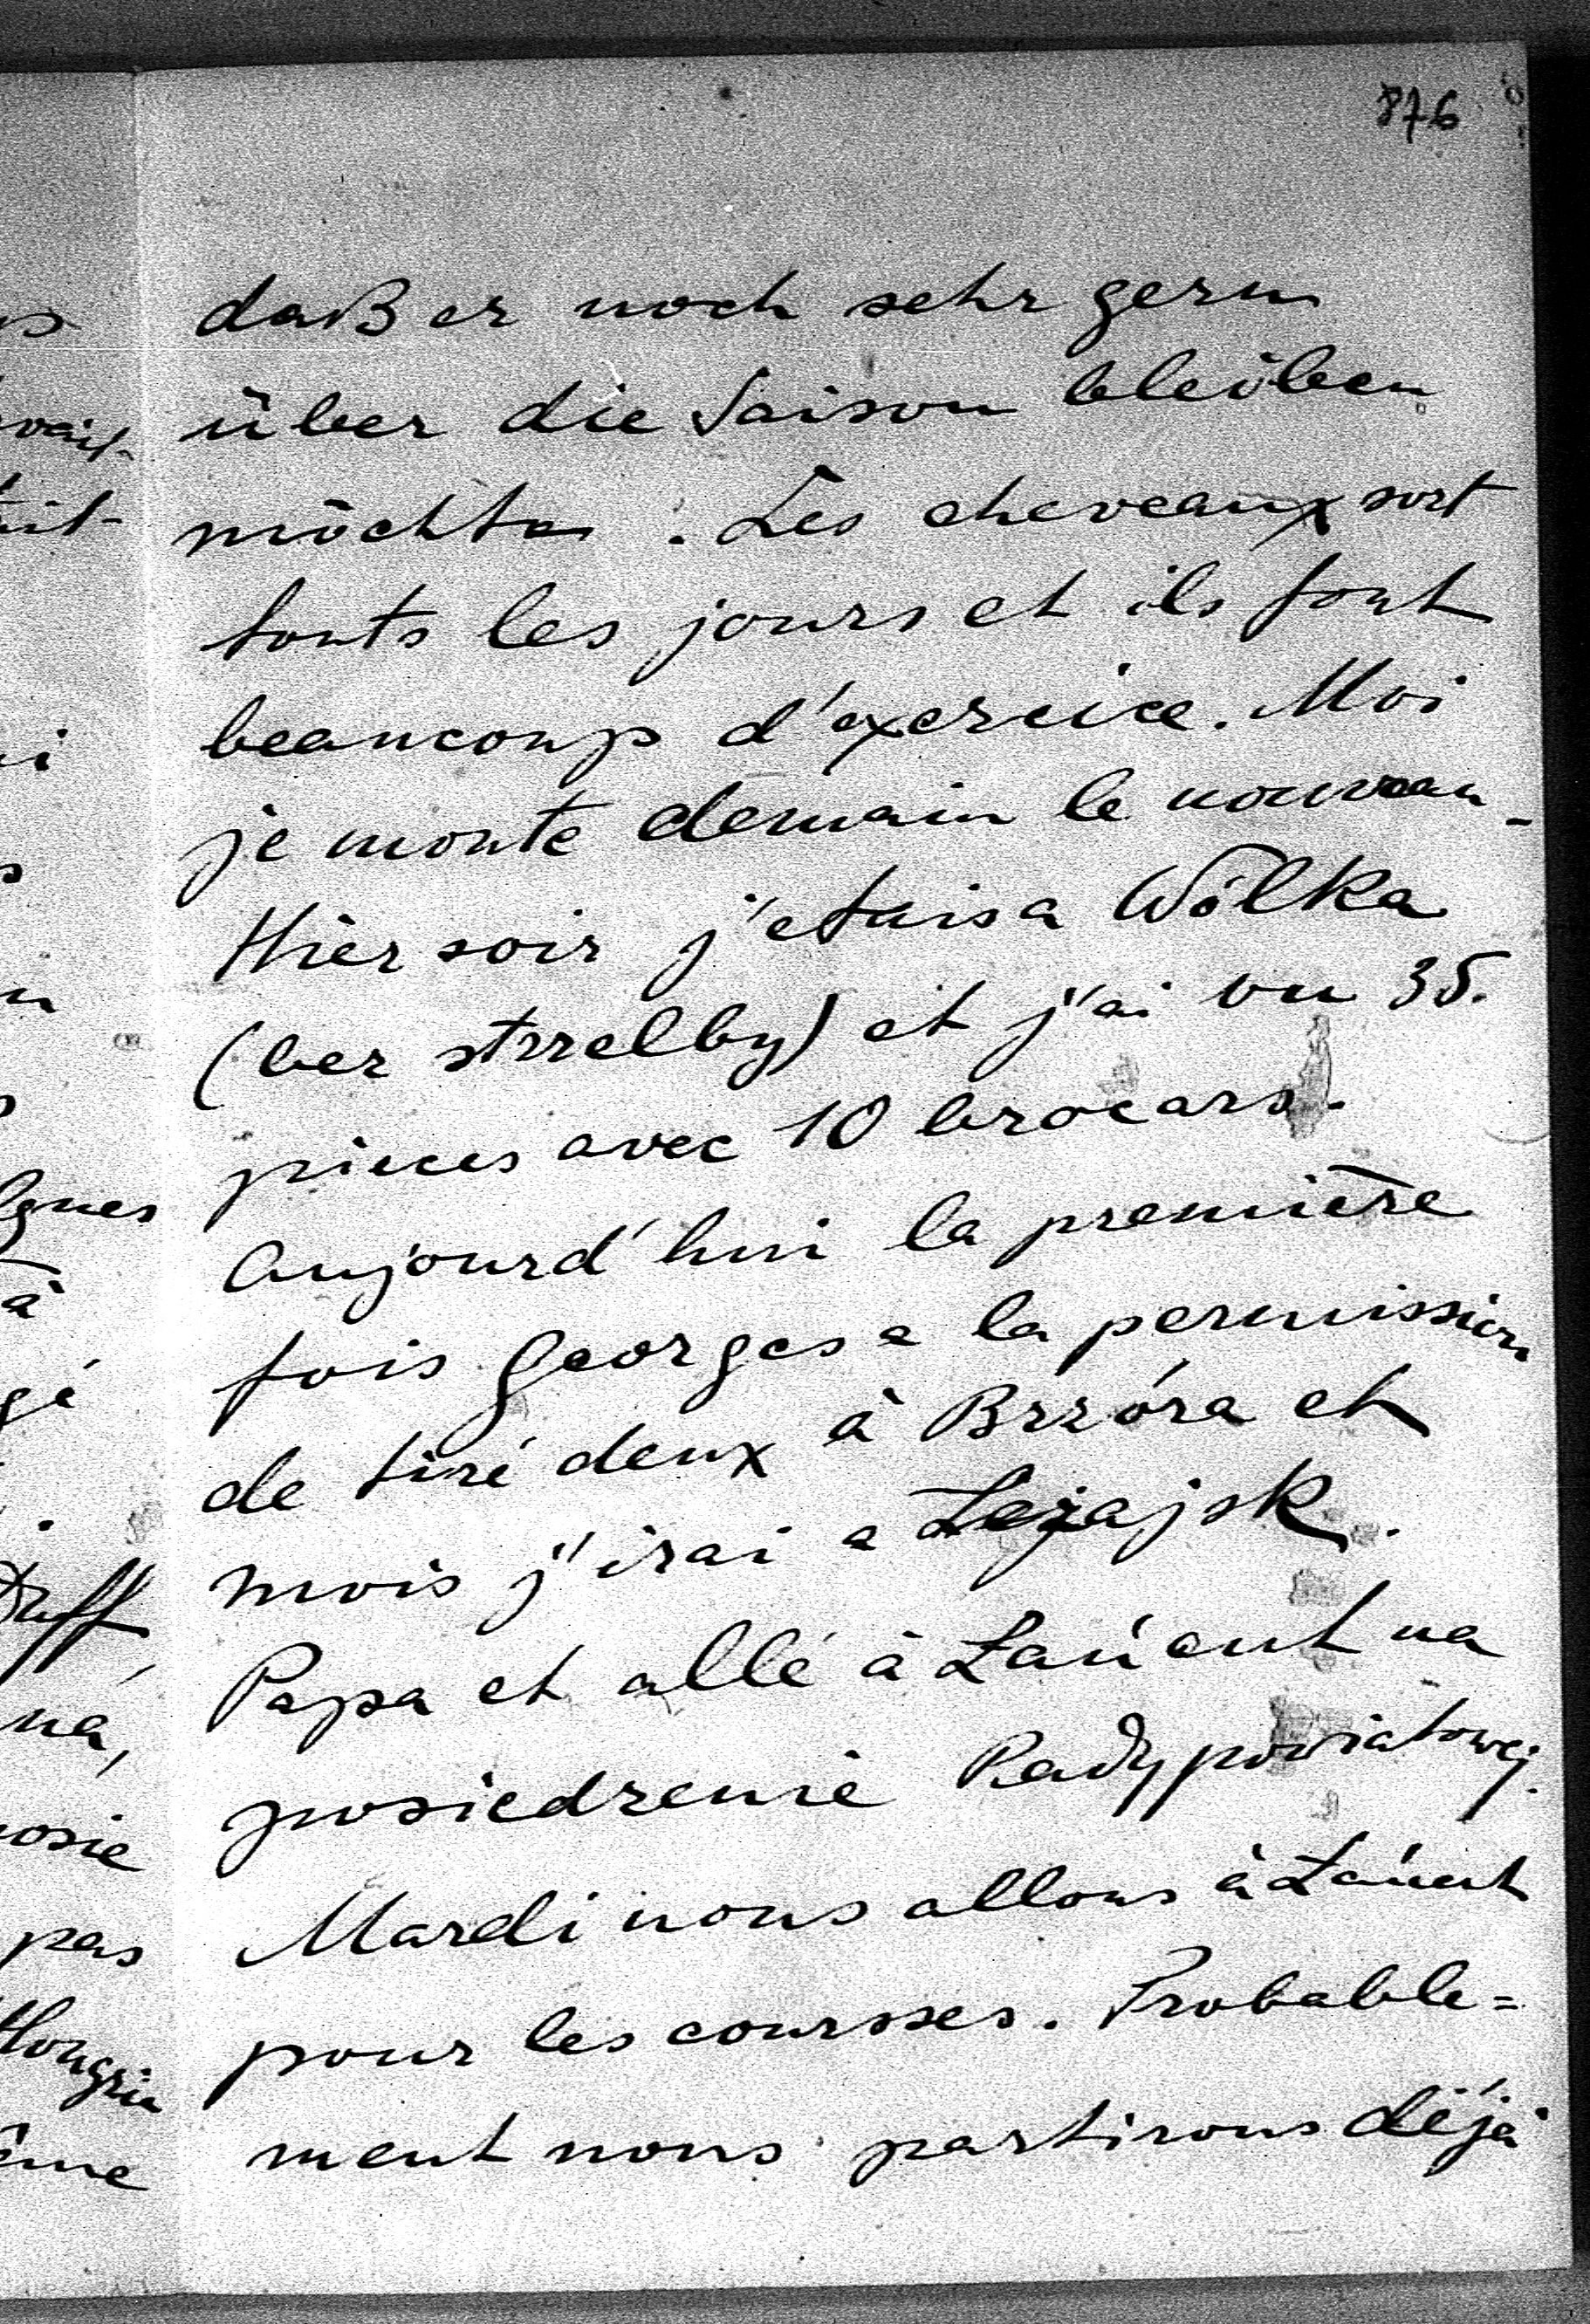 876
daß er noch sehr gern
über die Saison bleiben
möchte. Les cheveaux sort
touts les jours et ils font
beaucoup d'exercice. Moi
je monte demain le nouveau.
Hièr soir j'etais a Wólka
(bez strzelby) et j'ai vu 35.
pieces avec 10 brocars.
Aujourd'hui la première
fois Georges a la permission
de tiré deux à Brzóza et
mois j'irai a Leżajsk.
Papa et allé à Łańcut na
posiedzenie Rady powiatowej.
Mardi nous allons à Łańcut
pour les coursses. Probable=
ment nous partirons déjà
lgues
à
gé
ná,
osie
pas
Hongrie
ême